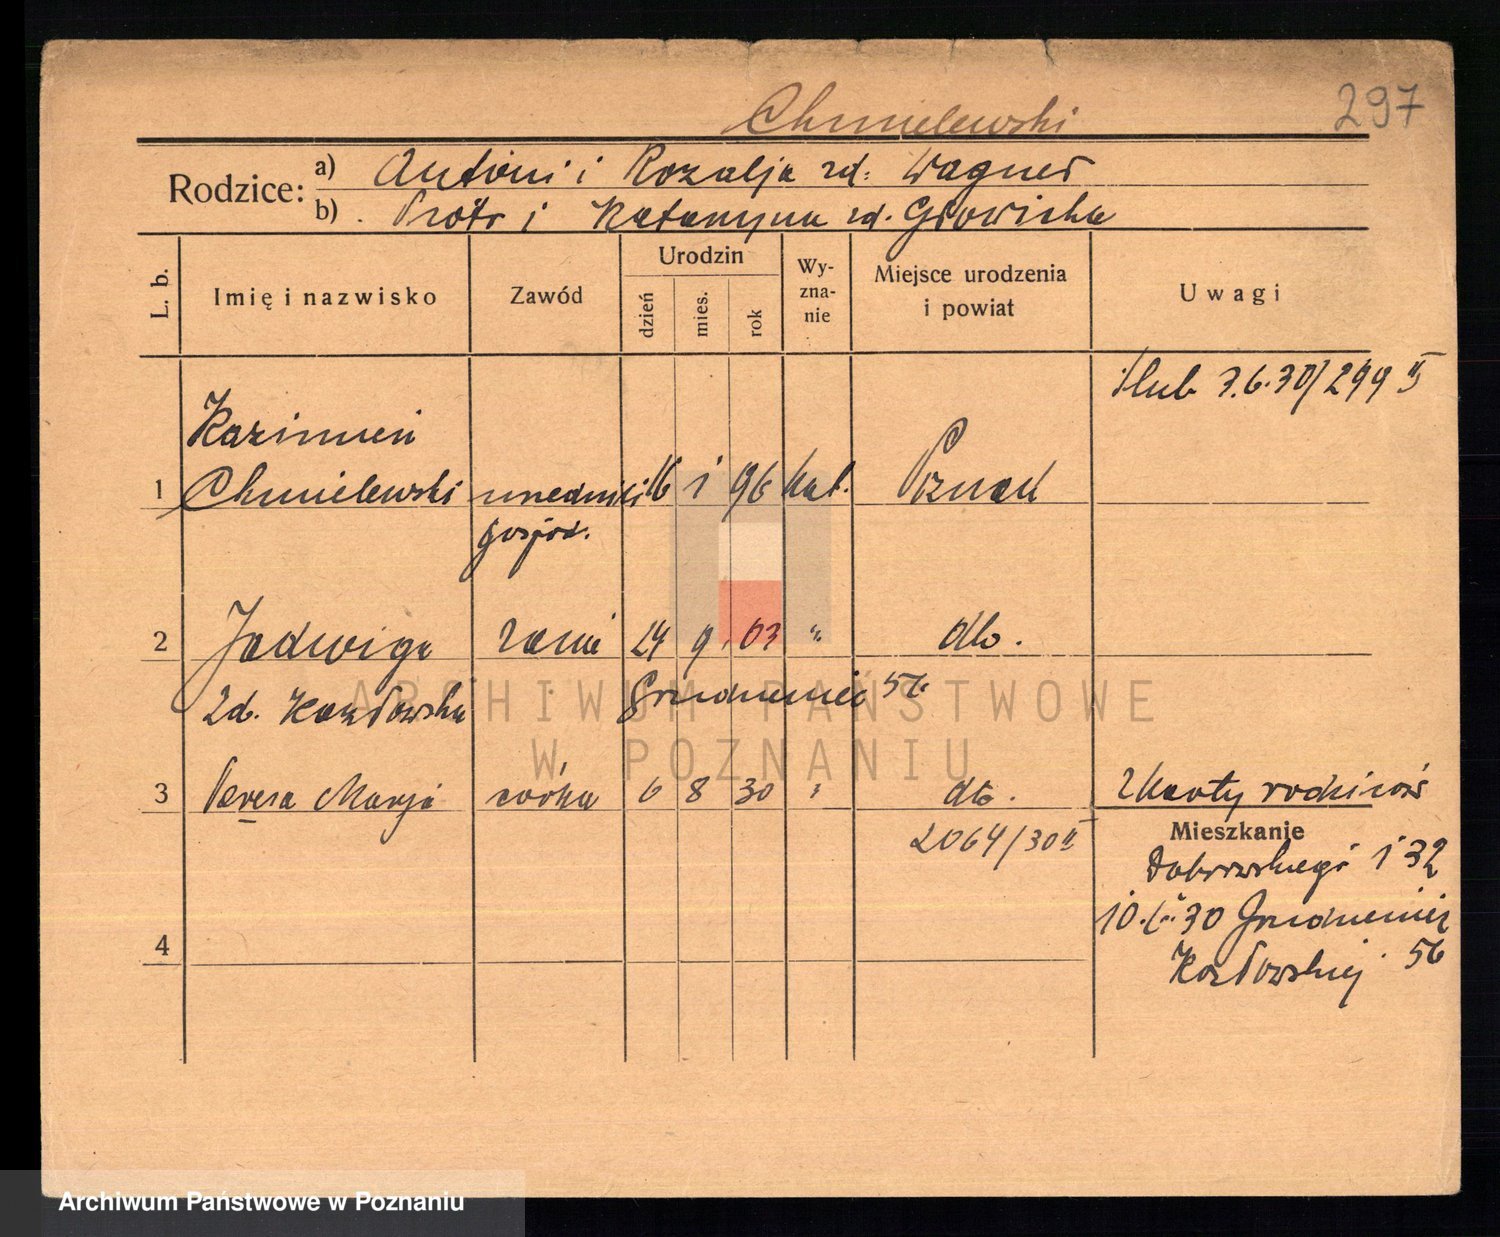 Chmielewski
297
Rodzice:
a) Antoni i Rozalja zd. Wagner
b) Piotr i Katarzyna zd. Głowicka
L. b.
Imię i nazwisko
Zawód
Urodzin
dzień
mies.
rok
Wy-
zna-
nie
Miejsce urodzenia
i powiat
Uwagi
ślub 7.6.30/299 II
Kazimierz
1 Chmielewski urzednik 16 1 96 kat. Poznań
gospod.
2 Jadwiga żona 24 9 03 " dto.
zd. Kozłowska Grudzieniec 56
3 Teresa Marja córka 6 8 30 " dto. z karty rodziców
2064/30 II
Mieszkanie
Dąbrowskiego 132
10. 30 Grudzieniec
Kozłowskiej 56
4
ARCHIWUM PAŃSTWOWE
W POZNANIU
Archiwum Państwowe w Poznaniu